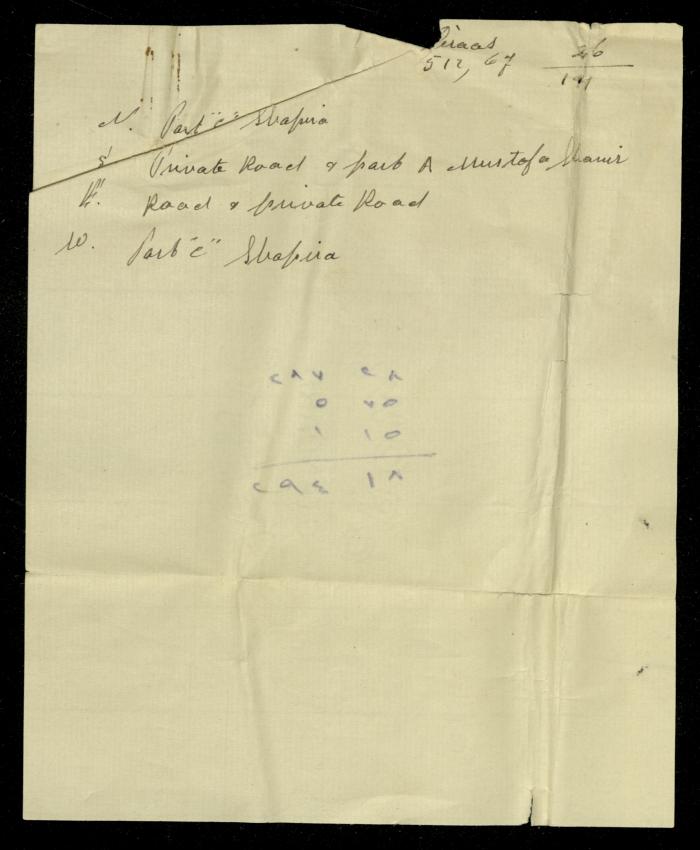 Diraas
512, 67
N. Part "C" Shapira
S. Private Road & part A Mustafa Shanir
E. Road & private Road
W. Part "C" Shapira
٢٨٧ ٢٨
٥ ٧٥
١ ١٥
٢٩٤ ١٨